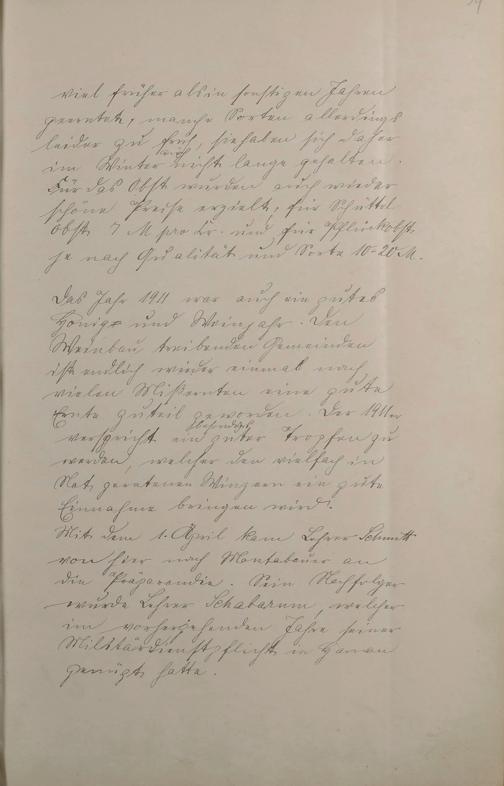 viel früher als in sonstigen Jahren
geerntet, manche Sorten allerdings
leider zu früh, sie haben sich daher
im Winter auch nicht lange gehalten.
Für das Obst wurden auch wieder
schöne Preise erzielt, für Schüttel-
obst 7 M pro Ztr. und für Pflückobst
je nach Qualität und Sorte 10-20 M.
Das Jahr 1911 war auch ein gutes
Honig und Weinjahr. Den
Weinbau treibenden Gemeinden
ist endlich wieder einmal nach
vielen Mißernten eine gute
Ernte zuteil geworden. Der 1911er
verspricht ein besonders guter Tropfen zu
werden, welcher den vielfach in
Not geratenen Winzern ein gute
Einnahme bringen wird.
Mit dem 1. April kam Lehrer Schmitt
von hier nach Montabaur an
die Präparandie. Sein Nachfolger
wurde Lehrer Schabarum, welcher
im vorhergehenden Jahre seiner
Militärdienstpflicht in Hanau
genügt hatte.